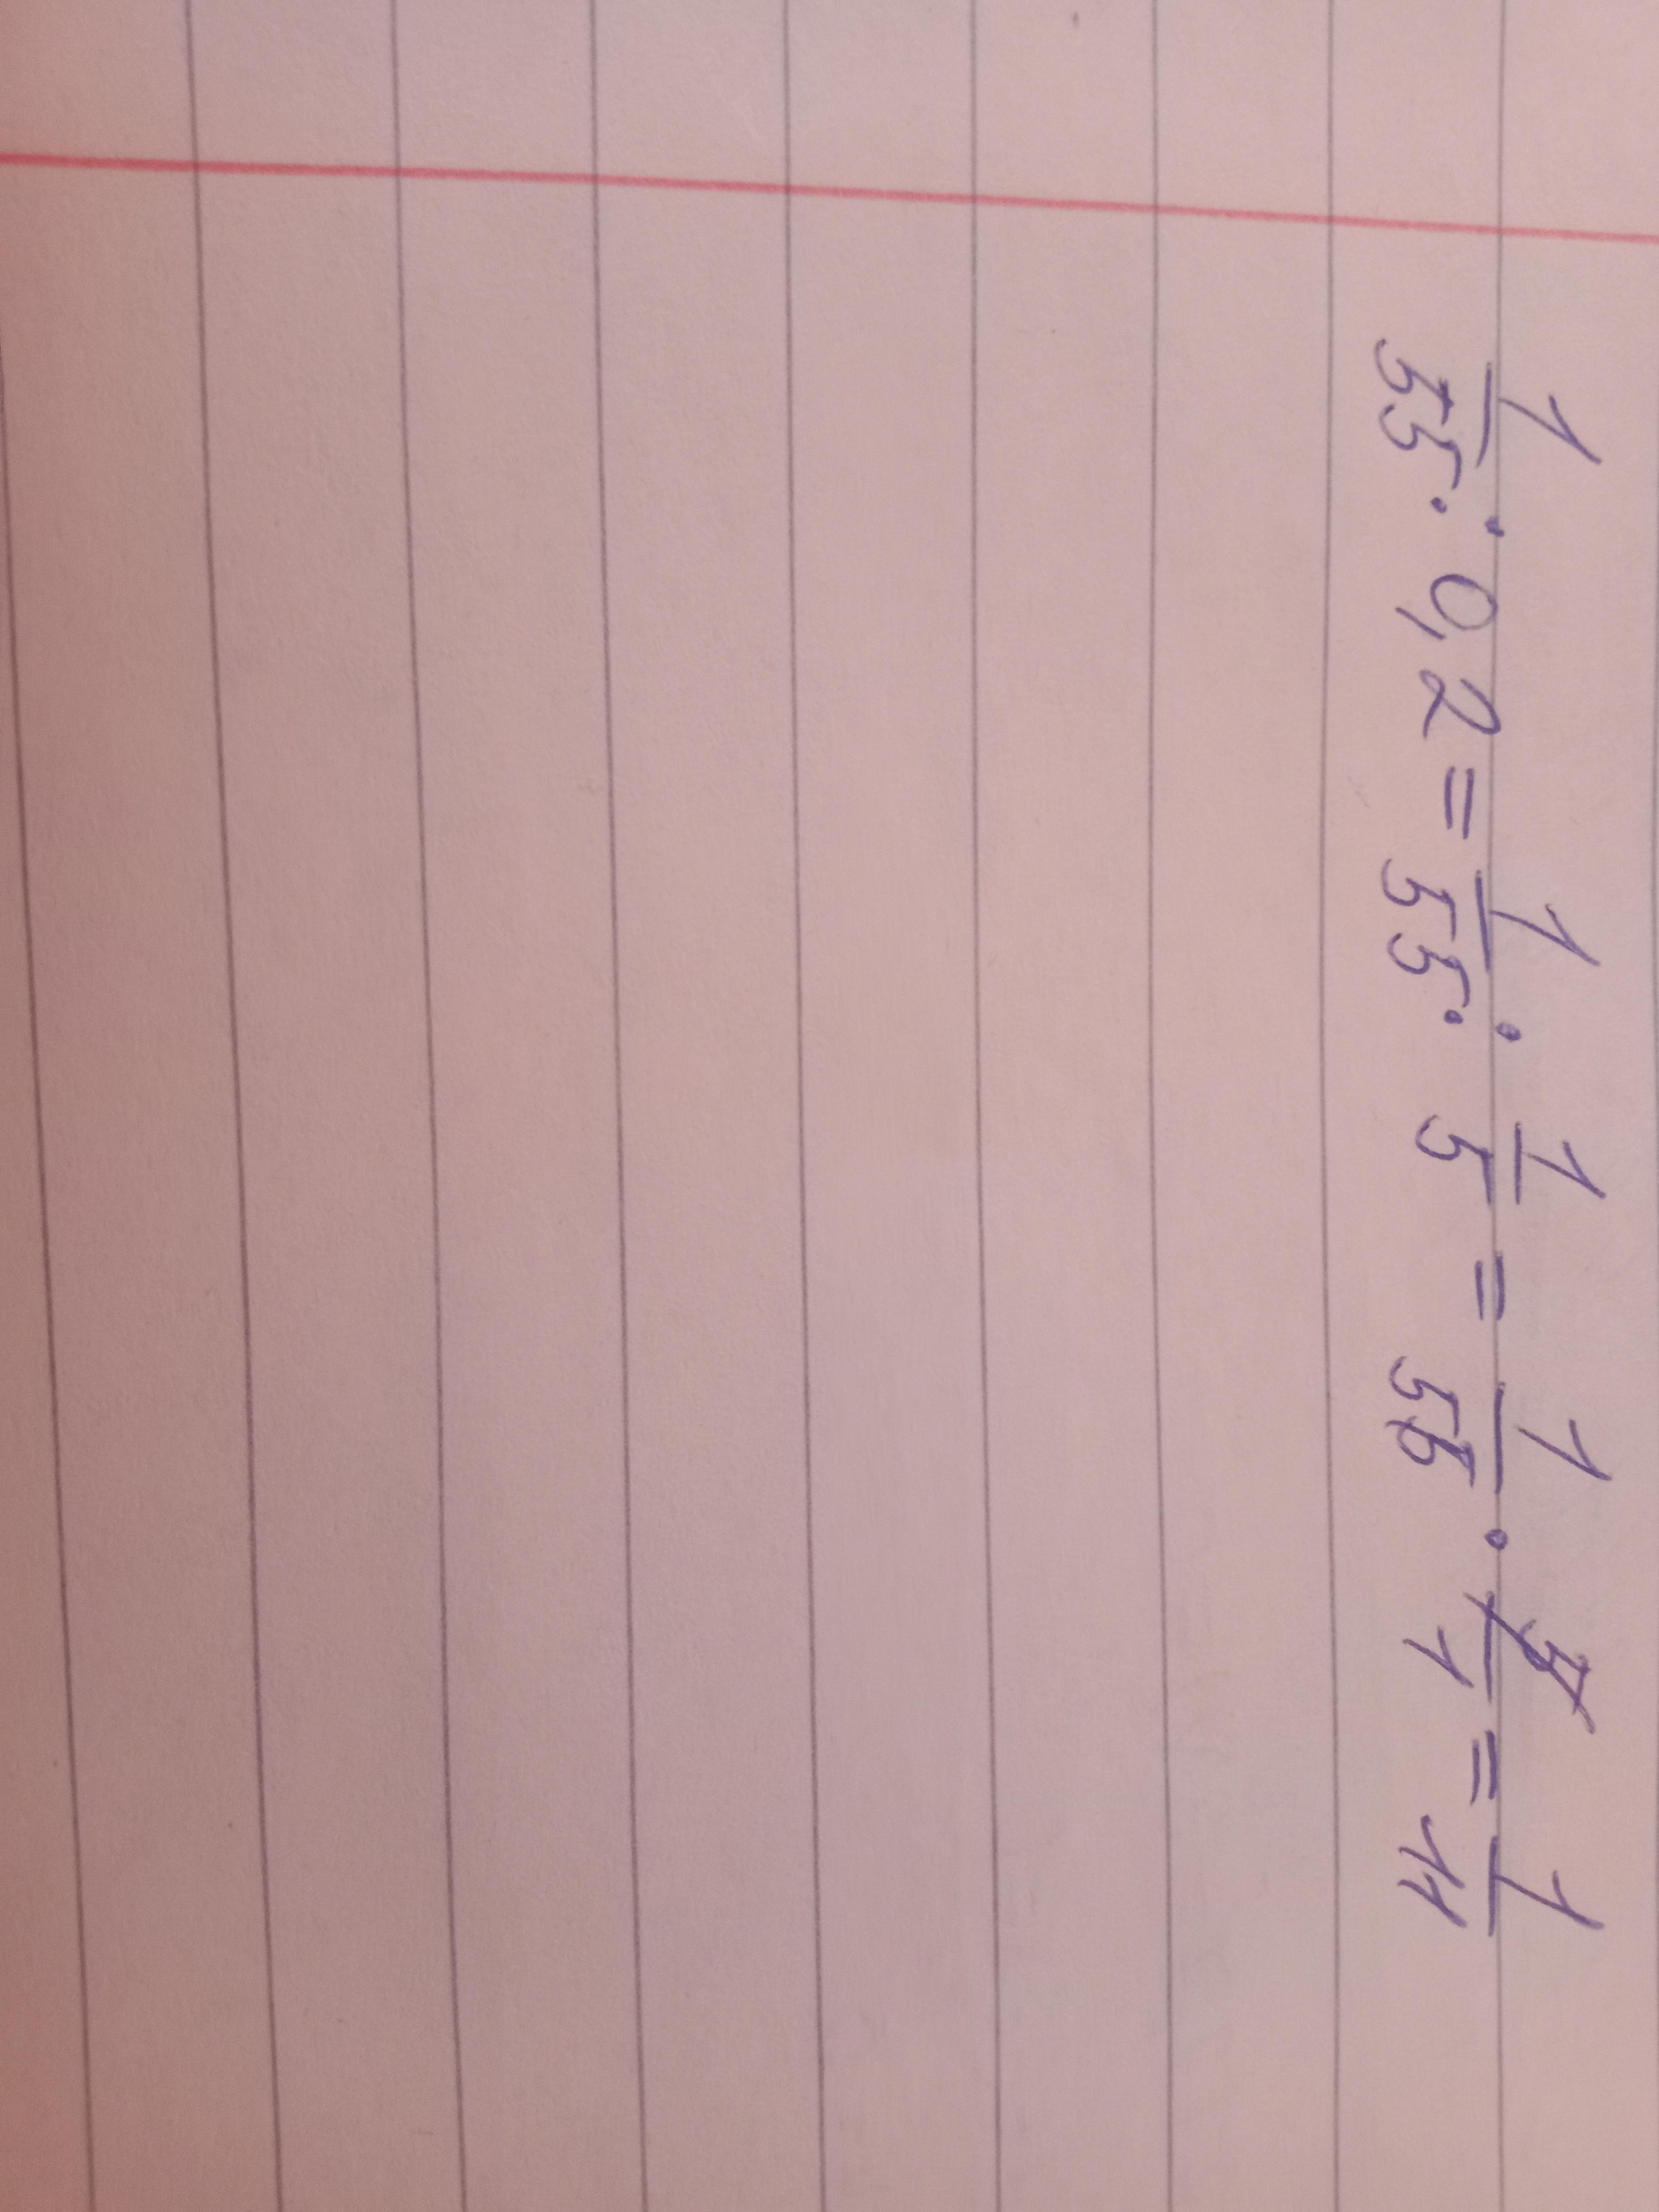 1/55 : 0,2 = 1/55 : 1/5 = 1/55 · 5/1 = 1/11